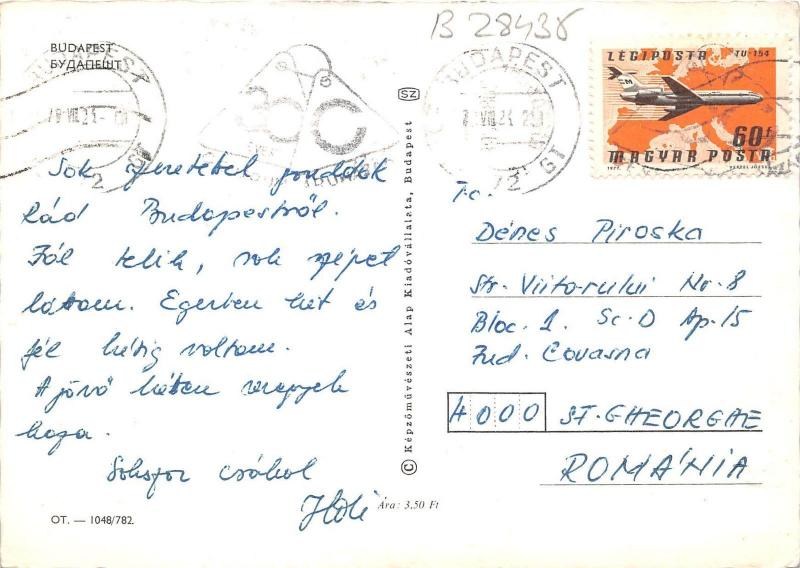 B 28438
BUDAPEST
БУДАПЕШТ
BUDAPEST
72
LÉGIPOSTA TU-154
60f
MAGYAR POSTA
1977.
SZ
Sok szeretettel gondolok
Rád Budapestről.
Jól telik, sok szépet
látom. Egerben két és
fél hétig voltam.
A jövő héten megyek
haza.
Sokszor csókol
OT. — 1048/782.
© Képzőművészeti Alap Kiadóvállalata, Budapest
Ára: 3,50 Ft
To.
Dénes Piroska
Str. Viitorului Nr. 8
Bloc. 1. Sc. D Ap. 15
Jud. Covasna
4000 ST. GHEORGHE
ROMÁNIA